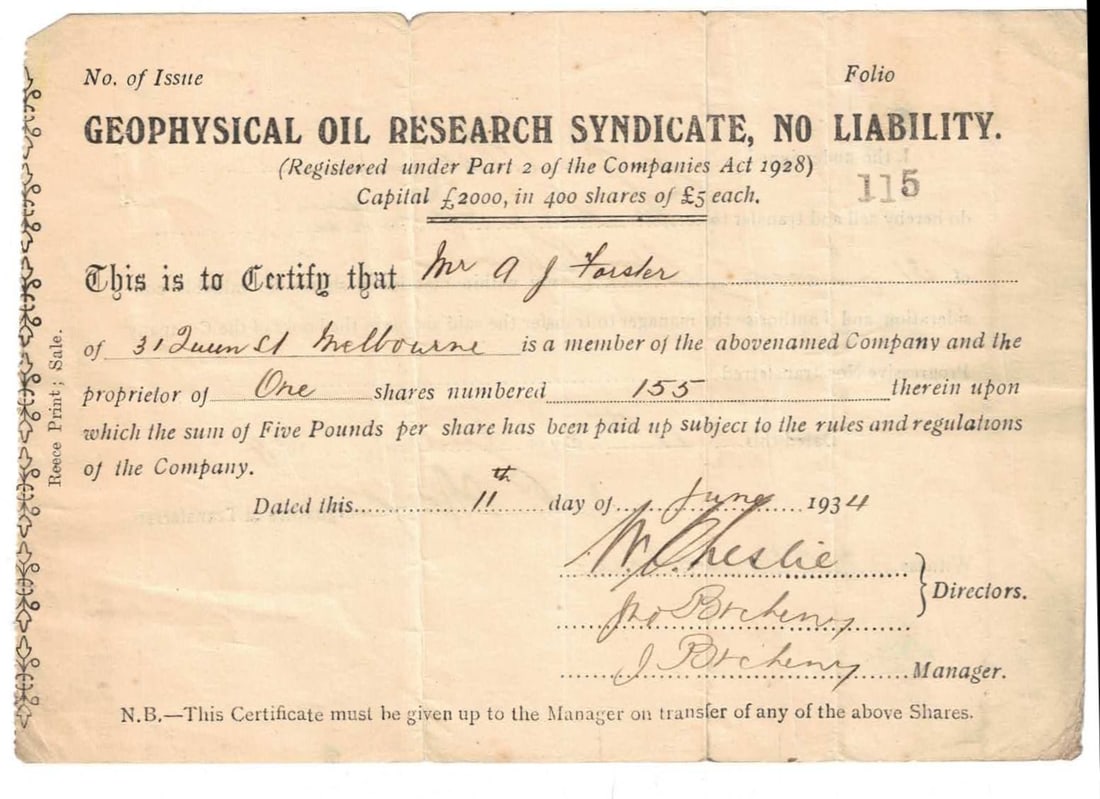 No. of Issue
Folio
GEOPHYSICAL OIL RESEARCH SYNDICATE, NO LIABILITY.
(Registered under Part 2 of the Companies Act 1928)
115
Capital £2000, in 400 shares of £5 each.
This is to Certify that Mr A J Forster
of 31 Queen St Melbourne is a member of the abovenamed Company and the
proprietor of One shares numbered 155 therein upon
which the sum of Five Pounds per share has been paid up subject to the rules and regulations
of the Company.
Dated this 11th day of June 1934
Directors.
Manager.
N.B.—This Certificate must be given up to the Manager on transfer of any of the above Shares.
Reece Print; Sale.